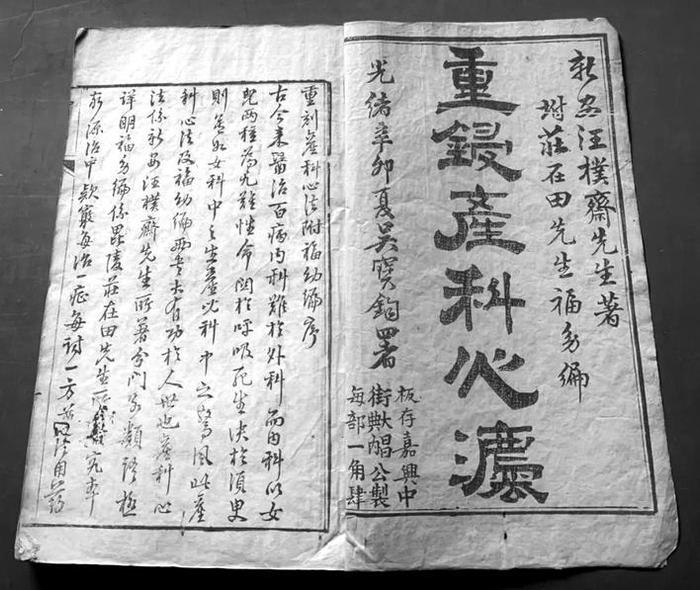 新安汪樸齋先生著
附莊在田先生福幼編
重鋟產科心灋
光緒辛卯夏吳寶鈞署
板存嘉興中
街 公製
每部一角肆
重刻產科心法附福幼編序
古今來醫治百病內科難於外科而內科以女
兒兩種為尤難性命關於呼吸死生決於須臾
則莫如女科中之生產兒科中之驚風此產
科心法及福幼編兩書大有功於人世也產科心
法係新安汪樸齋先生所著分門別類 極
詳明福幼編係毘陵莊在田先生所 究本
窮源治中款竅每治一症每討一方